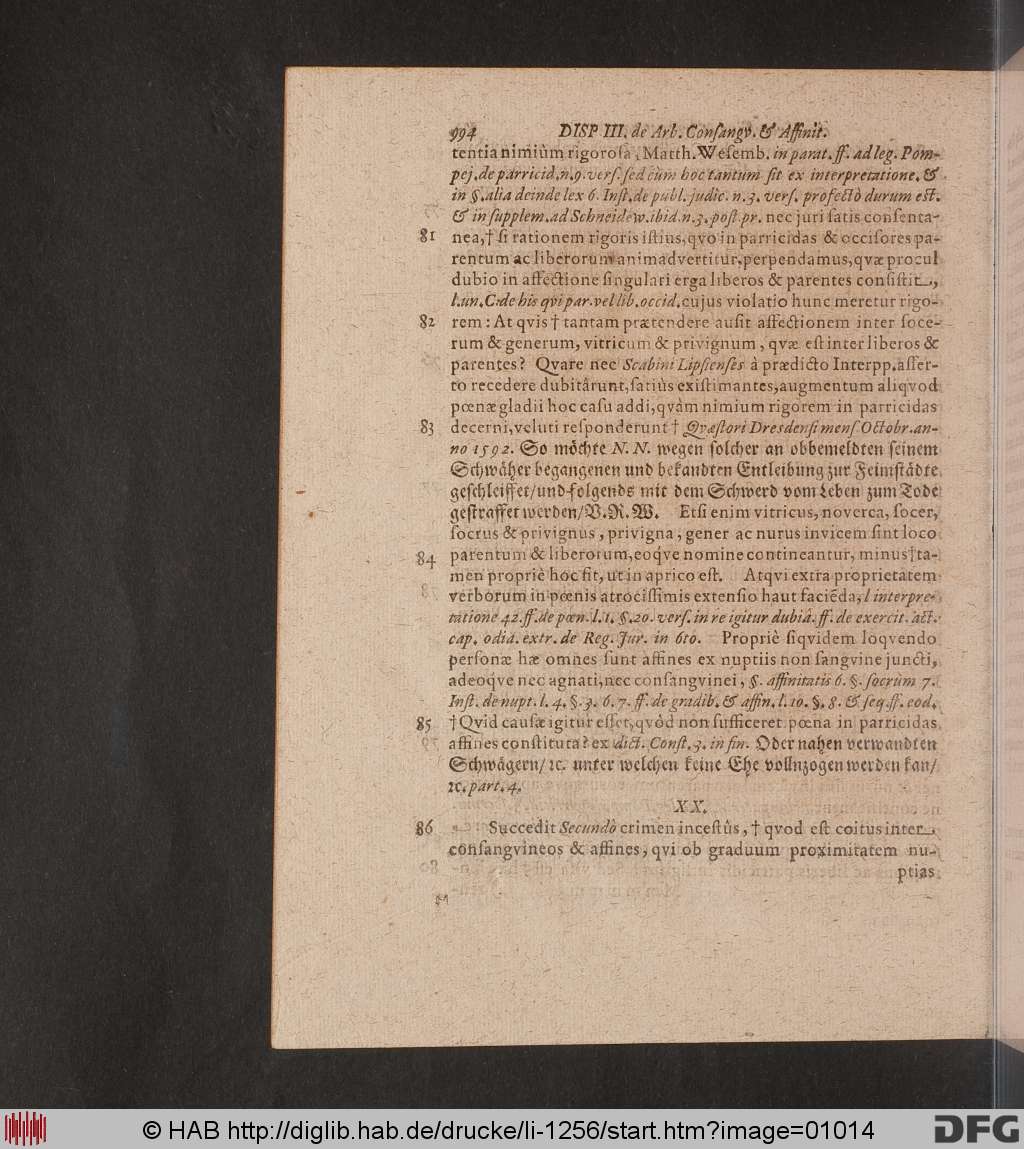 994 DISP III. de Arb. Consangv. & Affinit.
tentia nimiùm rigorosa, Matth. Wesemb. in parat. ff. ad leg. Pom-
pej. de parricid. n. 9. vers. sed cùm hoc tantum sit ex interpretatione. &
in §. alia deinde lex 6. Inst. de publ. judic. n. 3. vers. profectò durum est.
& in supplem. ad Schneidew. ibid. n. 3. post. pr. nec juri satis consenta-
81 nea, † si rationem rigoris istius, qvo in parricidas & occisores pa-
rentum ac liberorum animadvertitur, perpendamus, qvæ procul
dubio in affectione singulari erga liberos & parentes consistit,
l. un. C. de his qvi par. vel lib. occid. cujus violatio hunc meretur rigo-
82 rem: At qvis † tantam prætendere ausit affectionem inter soce-
rum & generum, vitricum & privignum, qvæ est inter liberos &
parentes? Qvare nec Scabini Lipsienses à prædicto Interpp. asser-
to recedere dubitârunt, satiùs existimantes, augmentum aliqvod
pœnæ gladii hoc casu addi, qvàm nimium rigorem in parricidas
83 decerni, veluti responderunt † Qvæstori Dresdensi mens. Octobr. an-
no 1592. So möchte N. N. wegen solcher an obbemeldten seinem
Schwäher begangenen und bekandten Entleibung zur Feimstädte
geschleiffet/ und folgends mit dem Schwerd vom Leben zum Tode
gestraffet werden/ V. R. W. Etsi enim vitricus, noverca, socer,
socrus & privignus, privigna, gener ac nurus invicem sint loco
84 parentum & liberorum, eoqve nomine contineantur, minus † ta-
men propriè hoc fit, ut in aprico est. Atqvi extra proprietatem
verborum in pœnis atrocissimis extensio haut faciẽda, l interpre-
tatione 42. ff. de pœn. l. 1. §. 20. vers. in re igitur dubiâ. ff. de exercit. act.
cap. odia. extr. de Reg. Jur. in 6to. Propriè siqvidem loqvendo
personæ hæ omnes sunt affines ex nuptiis non sangvine juncti,
adeoqve nec agnati, nec consangvinei, §. affinitatis 6. §. socrum 7.
Inst. de nupt. l. 4. §. 3. 6. 7. ff. de gradib. & affin. l. 10. §. 8. & seq. ff. eod.
85 † Qvid causæ igitur esset, qvòd non sufficeret pœna in parricidas
affines constituta? ex dict. Const. 3. in fin. Oder nahen verwandten
Schwägern/ ꝛc. unter welchen keine Ehe vollnzogen werden kan/
ꝛc. part. 4.
XX.
86 Succedit Secundò crimen incestûs, † qvod est coitus inter
consangvineos & affines, qvi ob graduum proximitatem nu-
ptias
© HAB http://diglib.hab.de/drucke/li-1256/start.htm?image=01014
DFG